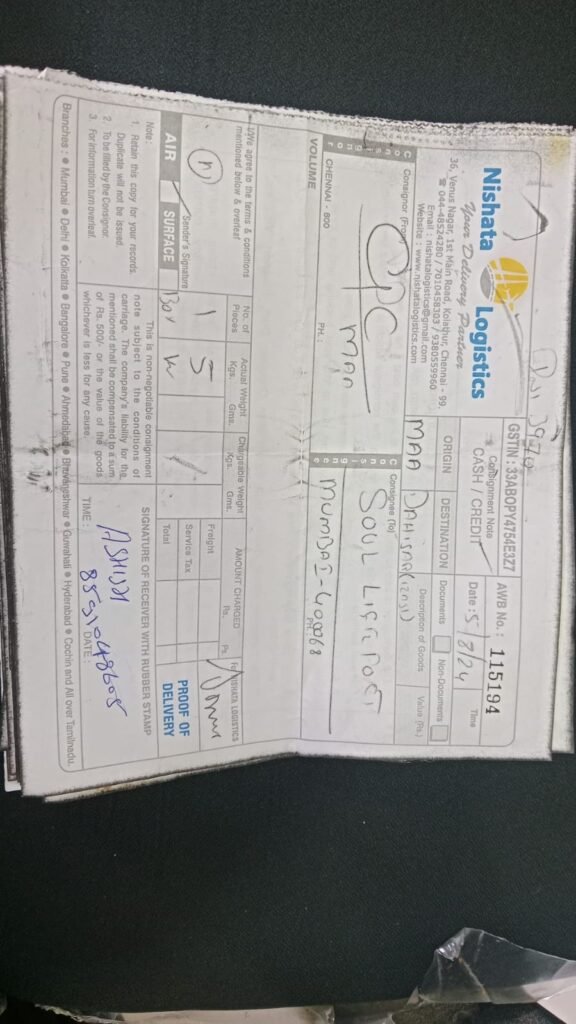 Nishata Logistics
Your Delivery Partner
36, Venus Nagar, 1st Main Road, Kolathur, Chennai - 99.
☎ 044-48524280 / 7010458303 / 9380559960
Email : nishatalogistics@gmail.com
Website : www.nishatalogistics.com
GSTIN : 33ABOPY4754E3Z7
Consignment Note
CASH / CREDIT
AWB No. : 115194
Date : 5/8/24
Time
ORIGIN
DESTINATION
Documents
Non-Documents
MAA
Description of Goods
Value (Rs.)
Consignor (From)
CPC
MAA
CHENNAI - 600
PH.
Consignee (To)
SOUL LIFE
MUMBAI-400068
PH.
VOLUME
I/We agree to the terms & conditions
mentioned below & overleaf
Sender's Signature
AIR
SURFACE
No. of Pieces
Actual Weight
Kgs.
Gms.
Chargeable Weight
Kgs.
Gms.
1
5
Box
AMOUNT CHARGED
Rs.
Ps.
Freight
Service Tax
Total
For NISHATA LOGISTICS
PROOF OF
DELIVERY
Note :
1. Retain this copy for your records.
Duplicate will not be issued.
2. To be filled by the Consignor.
3. For information turn overleaf.
This is non-negotiable consignment
note subject to the conditions of
carriage. The company's liability for the
mentioned shall be compensated to a sum
of Rs. 500/- or the value of the goods
whichever is less for any cause.
SIGNATURE OF RECEIVER WITH RUBBER STAMP
TIME :
DATE :
Branches : ● Mumbai ● Delhi ● Kolkatta ● Bangalore ● Pune ● Ahmedabad ● Bhuvaneshwar ● Guwahati ● Hyderabad ● Cochin and All over Tamilnadu.